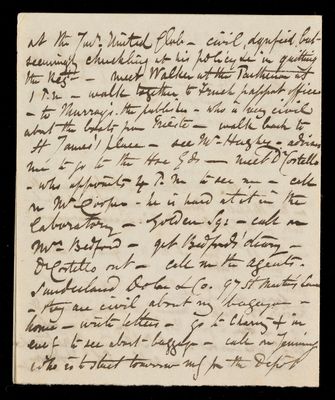 at the Junr. United Club – civil, dignified, but
seemingly chuckling at his policy in quitting
the Regt. – meet Walker at the Parthenon at
1 P.m – walk together to French passport office
– to Murray's the publisher – who is very civil
about the boats from Trieste – walk back to
St James' place – see Mr Hughes – advises
me to go to the Hse Gds – meet Dr Costello
– who appoints 4 P.m to see me – call
on Mr Cooper – he is hard at it in the
Laboratory – Golden Sqe – call on
Mrs Bedford – get Bedford's diary –
Dr Costello out – call on the agents –
Sunderland & Co. 97 St Martin's Lane
– they are civil about my baggage –
home – write letters – go to Charing + in
eveg to see about baggage – call on
who is to start tomorrow mg for the Depot